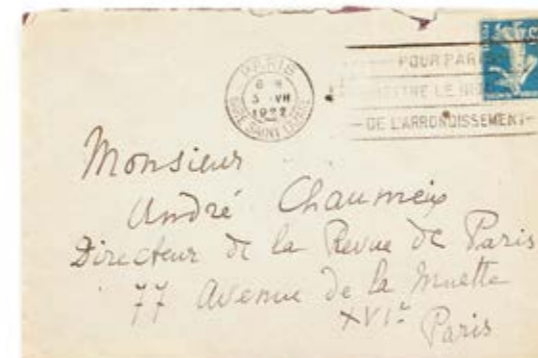 PARIS
5 VII
1922
GARE SAINT LAZARE
POUR PAR
METTRE LE
DE L'ARRONDISSEMENT
Monsieur
André Chaumeix
Directeur de la Revue de Paris
77 Avenue de la Muette
XVIe
Paris